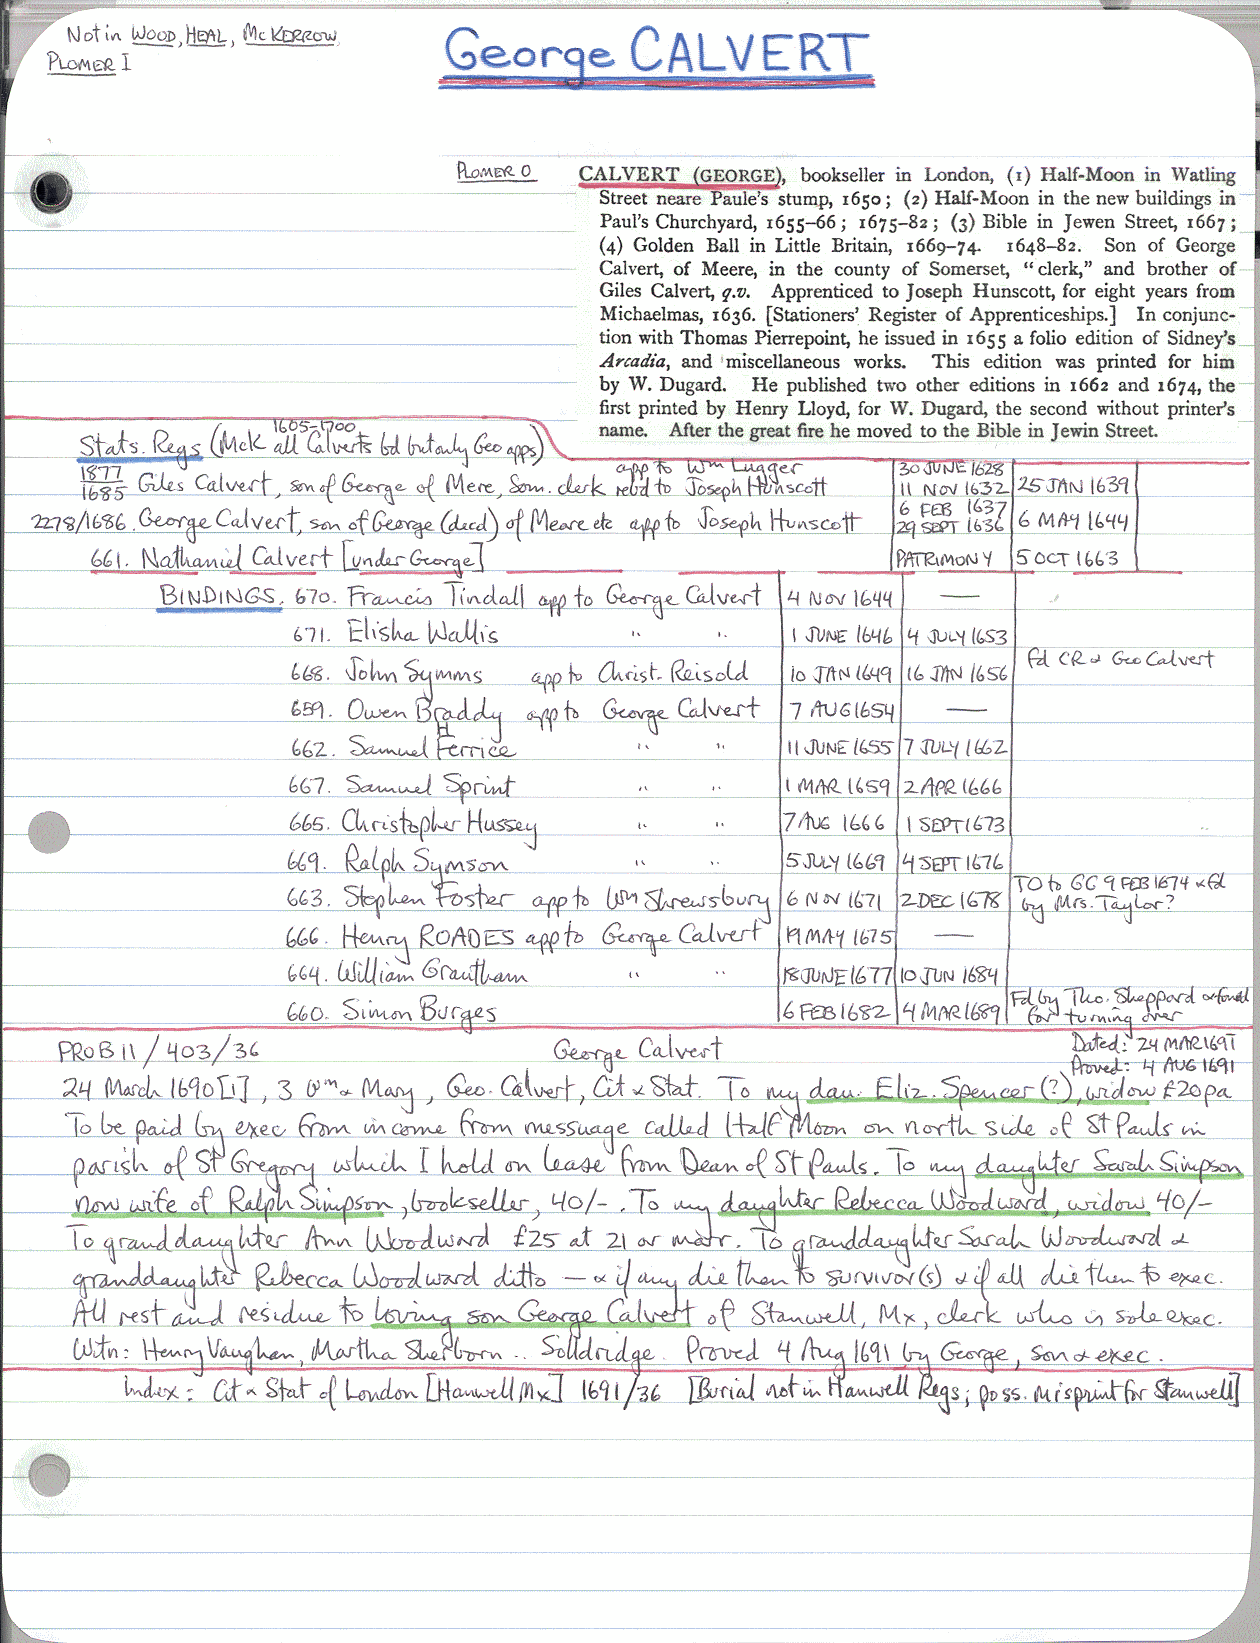 Not in WOOD, HEAL, McKERROW,
PLOMER I
George CALVERT
PLOMER O
CALVERT (GEORGE), bookseller in London, (1) Half-Moon in Watling
Street neare Paule's stump, 1650; (2) Half-Moon in the new buildings in
Paul's Churchyard, 1655–66; 1675–82; (3) Bible in Jewen Street, 1667;
(4) Golden Ball in Little Britain, 1669–74. 1648–82. Son of George
Calvert, of Meere, in the county of Somerset, "clerk," and brother of
Giles Calvert, q.v. Apprenticed to Joseph Hunscott, for eight years from
Michaelmas, 1636. [Stationers' Register of Apprenticeships.] In conjunc-
tion with Thomas Pierrepoint, he issued in 1655 a folio edition of Sidney's
Arcadia, and miscellaneous works. This edition was printed for him
by W. Dugard. He published two other editions in 1662 and 1674, the
first printed by Henry Lloyd, for W. Dugard, the second without printer's
name. After the great fire he moved to the Bible in Jewin Street.
1605–1700
Stats. Regs (McK all Calverts bd but only Geo apps)
app to Wm Lugger 30 JUNE 1628
1877/1685 Giles Calvert, son of George of Mere, Som. clerk rebd to Joseph Hunscott 11 NOV 1632 25 JAN 1639
6 FEB 1637
2278/1686. George Calvert, son of George (decd) of Meare etc app to Joseph Hunscott 29 SEPT 1636 6 MAY 1644
661. Nathaniel Calvert [under George] PATRIMONY 5 OCT 1663
BINDINGS. 670. Francis Tindall app to George Calvert 4 NOV 1644 —
671. Elisha Wallis " " 1 JUNE 1646 4 JULY 1653
668. John Symms app to Christ. Reisold 10 JAN 1649 16 JAN 1656 fd CR & Geo Calvert
659. Owen Braddy app to George Calvert 7 AUG 1654 —
H
662. Samuel Ferrice " " 11 JUNE 1655 7 JULY 1662
667. Samuel Sprint " " 1 MAR 1659 2 APR 1666
665. Christopher Hussey " " 7 AUG 1666 1 SEPT 1673
669. Ralph Symson " " 5 JULY 1669 4 SEPT 1676
663. Stephen Foster app to Wm Shrewsbury 6 NOV 1671 2 DEC 1678 TO to GC 9 FEB 1674 & fd
by Mrs. Taylor?
666. Henry ROADES app to George Calvert 19 MAY 1675 —
664. William Grantham " " 18 JUNE 1677 10 JUN 1684
660. Simon Burges 6 FEB 1682 4 MAR 1689 Fd by Tho. Sheppard & fined
for turning over
PROB 11/403/36 George Calvert Dated: 24 MAR 1691
Proved: 4 AUG 1691
24 March 1690[1], 3 Wm & Mary, Geo. Calvert, Cit & Stat. To my dau. Eliz. Spencer (?), widow £20pa
To be paid by exec from income from messuage called Half Moon on north side of St Pauls in
parish of St Gregory which I hold on lease from Dean of St Pauls. To my daughter Sarah Simpson
now wife of Ralph Simpson, bookseller, 40/-. To my daughter Rebecca Woodward, widow 40/-
To granddaughter Ann Woodward £25 at 21 or marr. To granddaughter Sarah Woodward &
granddaughter Rebecca Woodward ditto — & if any die then to survivor(s) & if all die then to exec.
All rest and residue to loving son George Calvert of Stanwell, Mx, clerk who is sole exec.
Witn: Henry Vaughan, Martha Sherborn .. Solldridge. Proved 4 Aug 1691 by George, son & exec.
Index: Cit & Stat of London [Hanwell, Mx] 1691/36 [Burial not in Hanwell Regs; poss. misprint for Stanwell]